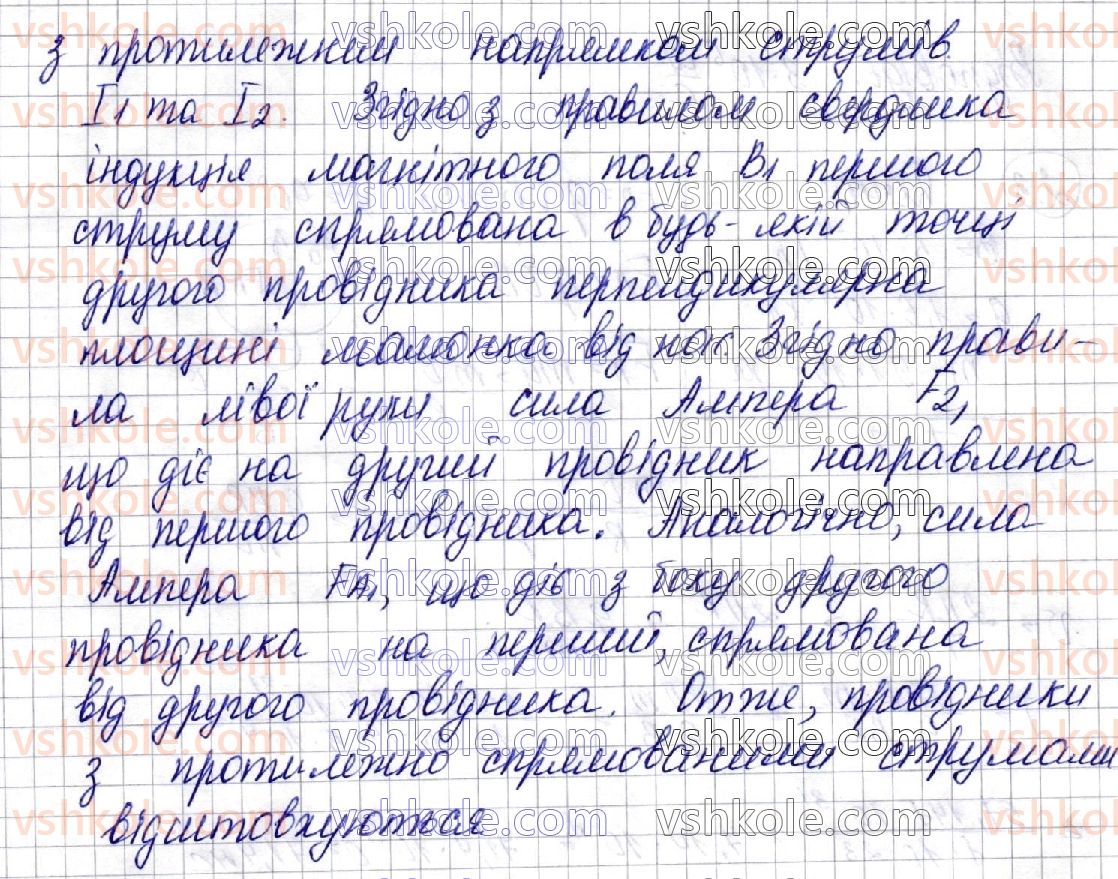 з протилежним напрямком струмів
I1 та I2. Згідно з правилом свердлика
індукція магнітного поля B1 першого
струму спрямована в будь-якій точці
другого провідника перпендикулярна
площині малюнка від нас. Згідно прави-
ла лівої руки сила Ампера F2,
що діє на другий провідник направлена
від першого провідника. Аналогічно, сила
Ампера FA1, що діє з боку другого
провідника на перший, спрямована
від другого провідника. Отже, провідники
з протилежно спрямованими струмами
відштовхуються
vshkole.com